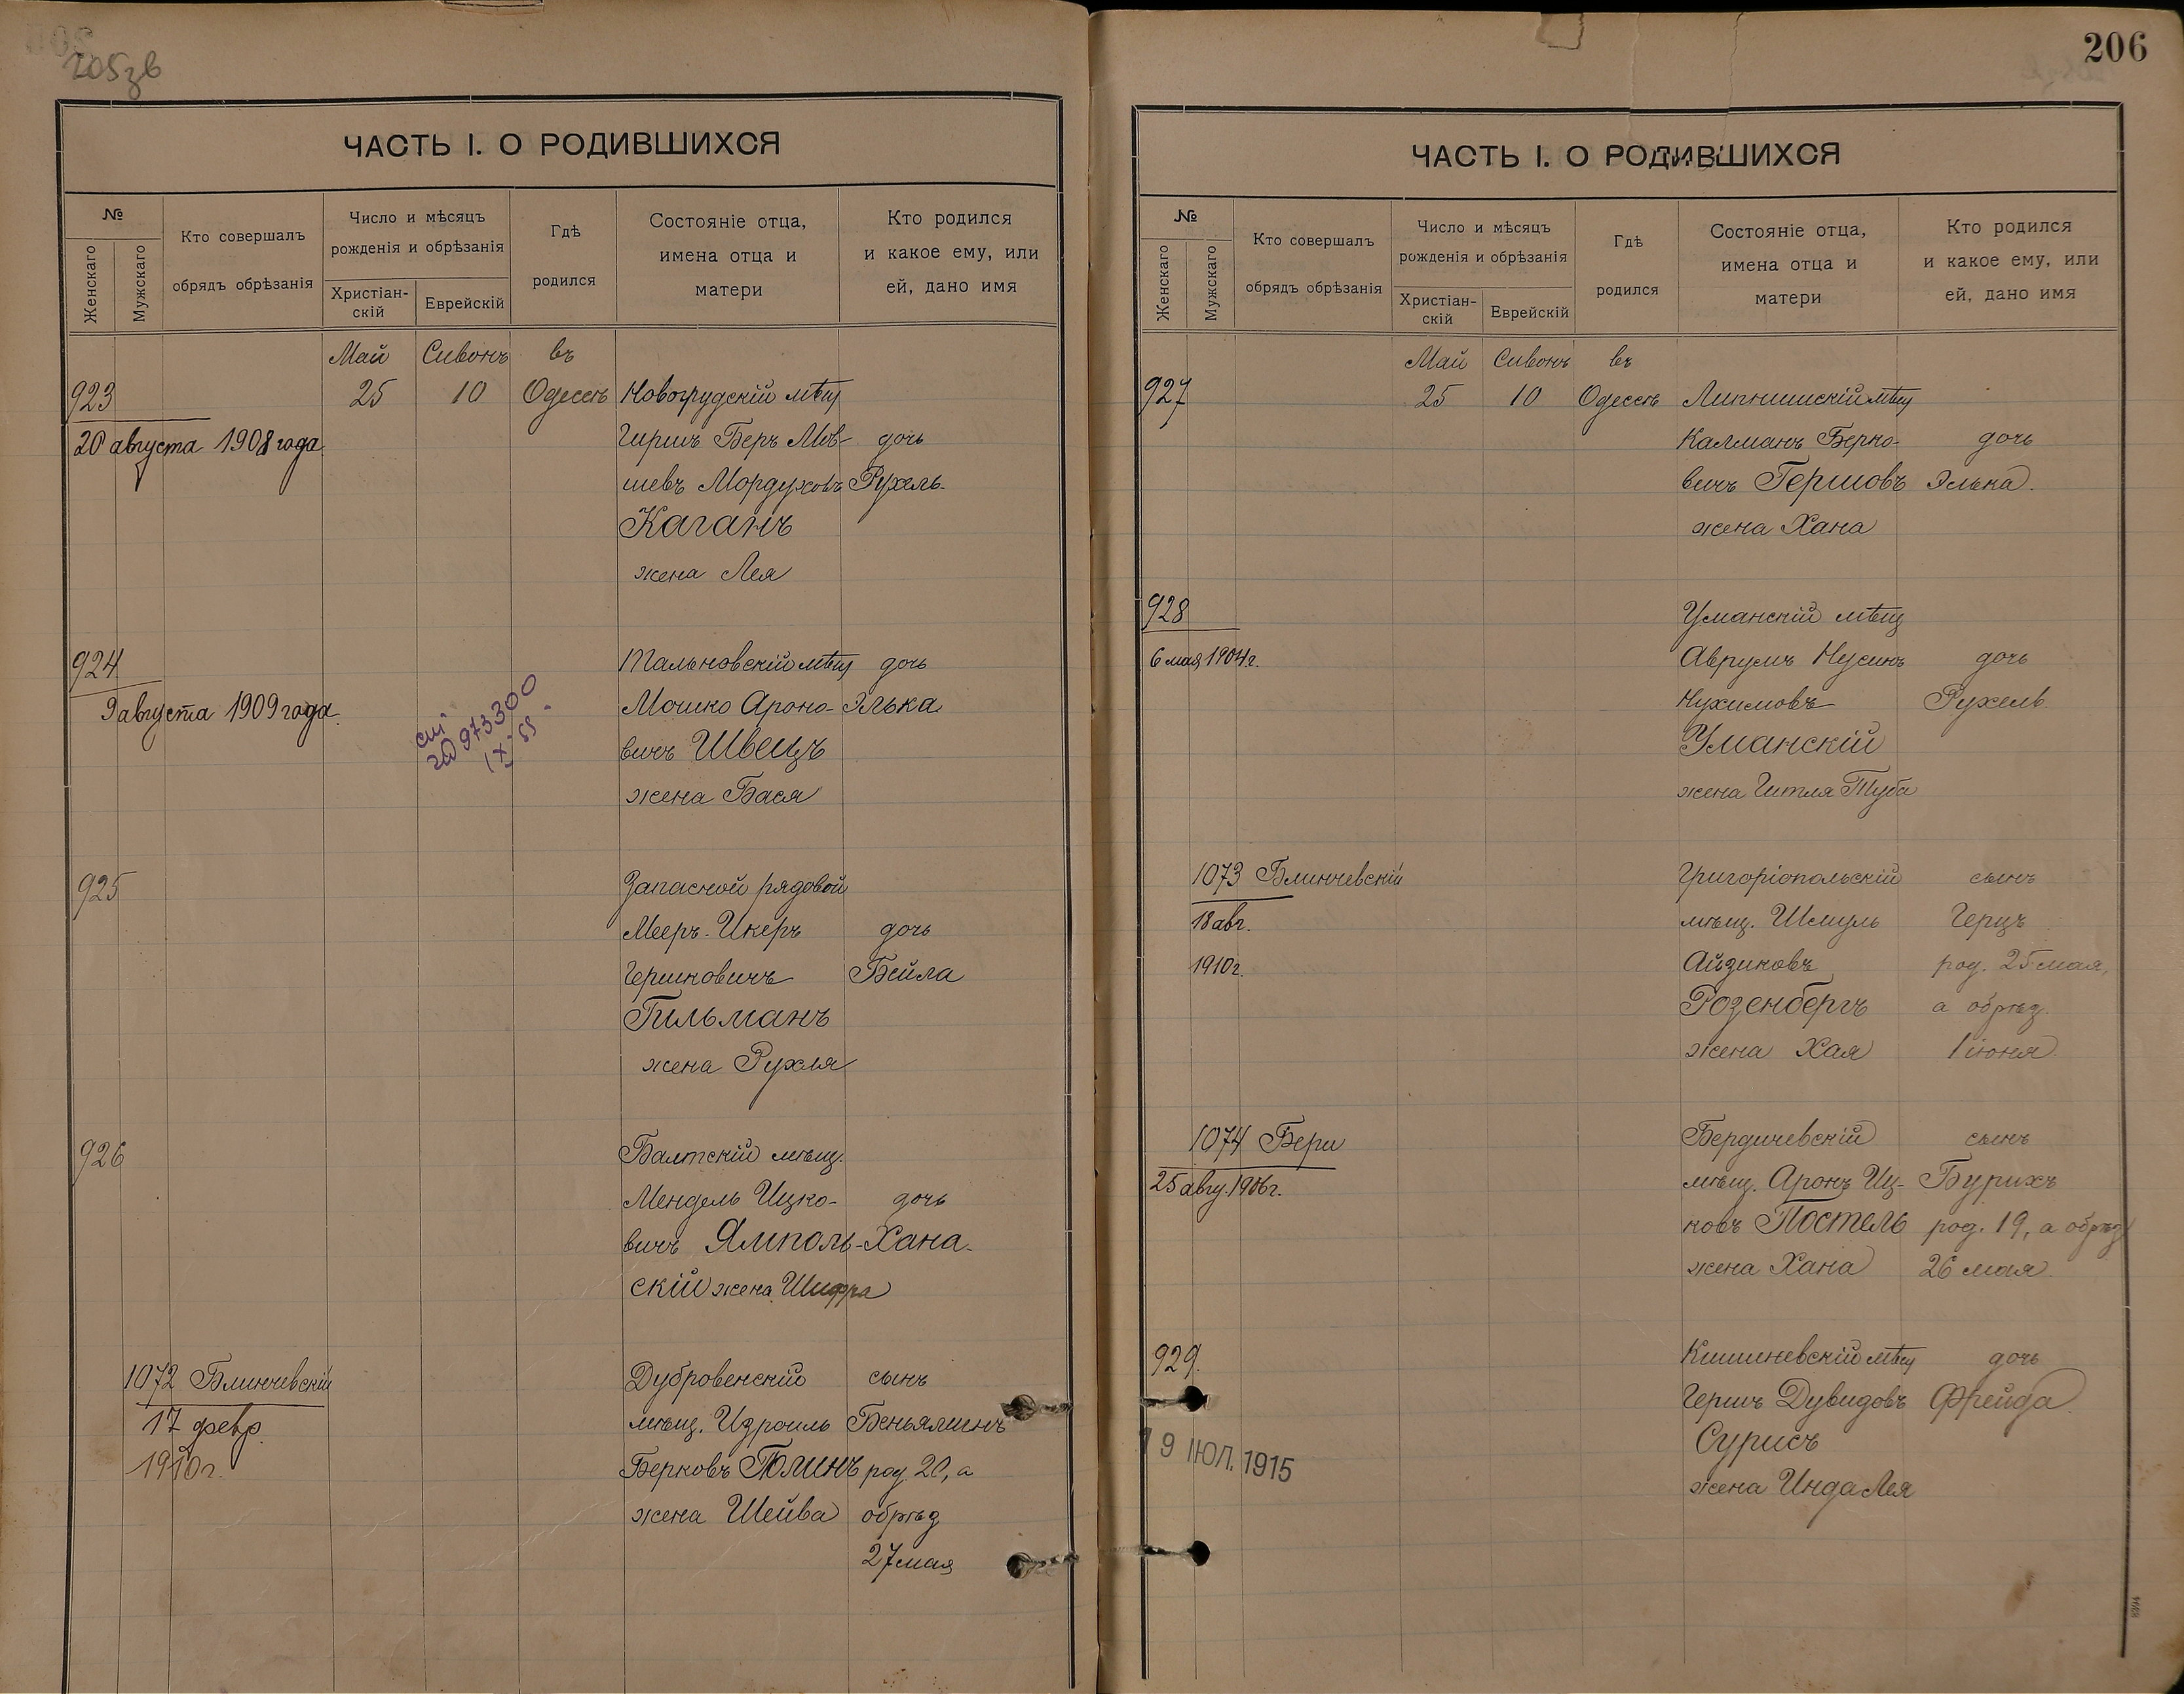 205зв
ЧАСТЬ I. О РОДИВШИХСЯ
№
Женскаго
Мужскаго
Кто совершалъ
обрядъ обрѣзанія
Число и мѣсяцъ
рожденія и обрѣзанія
Христіан-
скій
Еврейскій
Гдѣ
родился
Состояніе отца,
имена отца и
матери
Кто родился
и какое ему, или
ей, дано имя
Май Сивонъ въ
923 25 10 Одессѣ Новогрудскій мѣщ
20 августа 1908 года Гиршъ Беръ Мов- дочь
шевъ Мордуховъ Рухель
Каганъ
жена Лея
924 Тальновскій мѣщ дочь
9 августа 1909 года Мошко Ароно- Элька
вичъ Швецъ
жена Бася
973300
925 Запасной рядовой
Мееръ-Икеръ дочь
Гершковичъ Бейла
Гильманъ
жена Рухля
926 Балтскій мѣщ.
Мендель Ицко- дочь
вичъ Ямполь- Хана
скій жена Шифра
1072 Блинчевскій Дубровенскій сынъ
17 февр. мѣщ. Изроиль Беньяминъ
1910 г. Берковъ род. 20, а
жена Шейва обрѣз
27 мая
206
ЧАСТЬ I. О РОДИВШИХСЯ
№
Женскаго
Мужскаго
Кто совершалъ
обрядъ обрѣзанія
Число и мѣсяцъ
рожденія и обрѣзанія
Христіан-
скій
Еврейскій
Гдѣ
родился
Состояніе отца,
имена отца и
матери
Кто родился
и какое ему, или
ей, дано имя
Май Сивонъ въ
927 25 10 Одессѣ Липнишскій мѣщ
Калманъ Берко- дочь
вичъ Гершовъ Элька
жена Хана
928 Уманскій мѣщ
6 мая 1904 г. Аврумъ Нусинъ дочь
Нухимовъ Рухель
Уманскій
жена Гитля Туба
1073 Блинчевскій Григоріопольскій сынъ
18 авг. мѣщ. Шмуль Герцъ
1910 г. Айзиковъ род. 25 мая,
Розенбергъ а обрѣз.
жена Хая 1 іюня
1074 Бери Бердичевскій сынъ
25 авгу. 1906 г. мѣщ. Аронъ Иц- Бурихъ
ковъ Постель род. 19, а обрѣз
жена Хана 26 мая
929. Кишиневскій мѣщ дочь
Гершъ Дувидовъ Фрейда
Сурисъ
19 ІЮЛ. 1915
жена Инда Лея